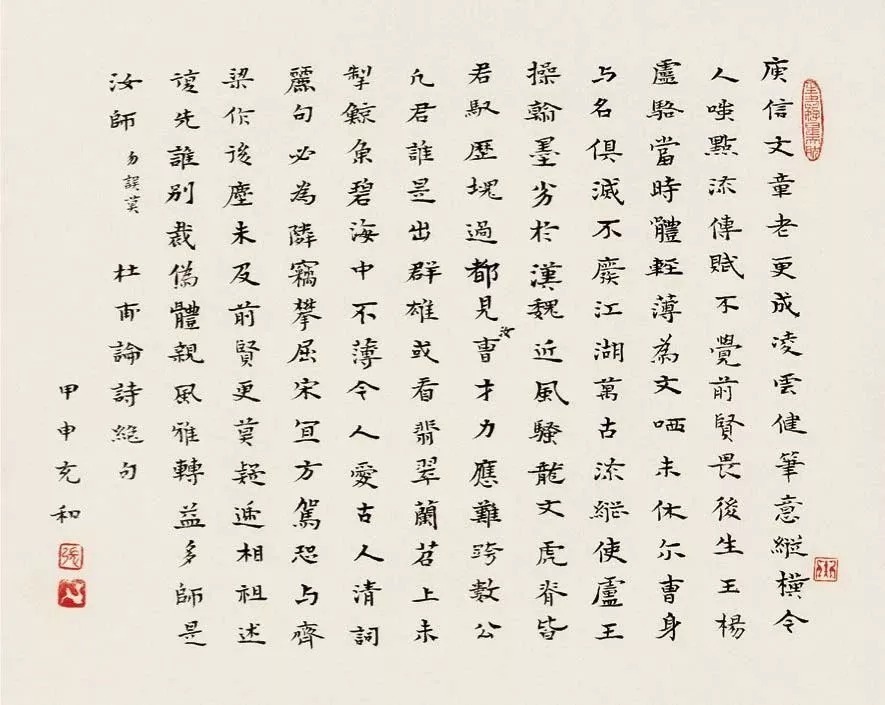 庾信文章老更成凌雲健筆意縱橫今
人嗤點流傳賦不覺前賢畏後生王楊
盧駱當時體輕薄為文哂未休尔曹身
与名俱滅不廢江湖萬古流縱使盧王
操翰墨劣於漢魏近風騷龍文虎脊皆
君馭歷塊過都見汝曹才力應難跨數公
凢君誰是出群雄或看翡翠蘭苕上未
掣鯨魚碧海中不薄今人愛古人清詞
麗句必為隣竊攀屈宋宜方駕恐与齊
梁作後塵未及前賢更莫疑遞相祖述
復先誰別裁偽體親風雅轉益多師是
汝師 勿誤莫 杜甫論詩絕句
甲申充和
張